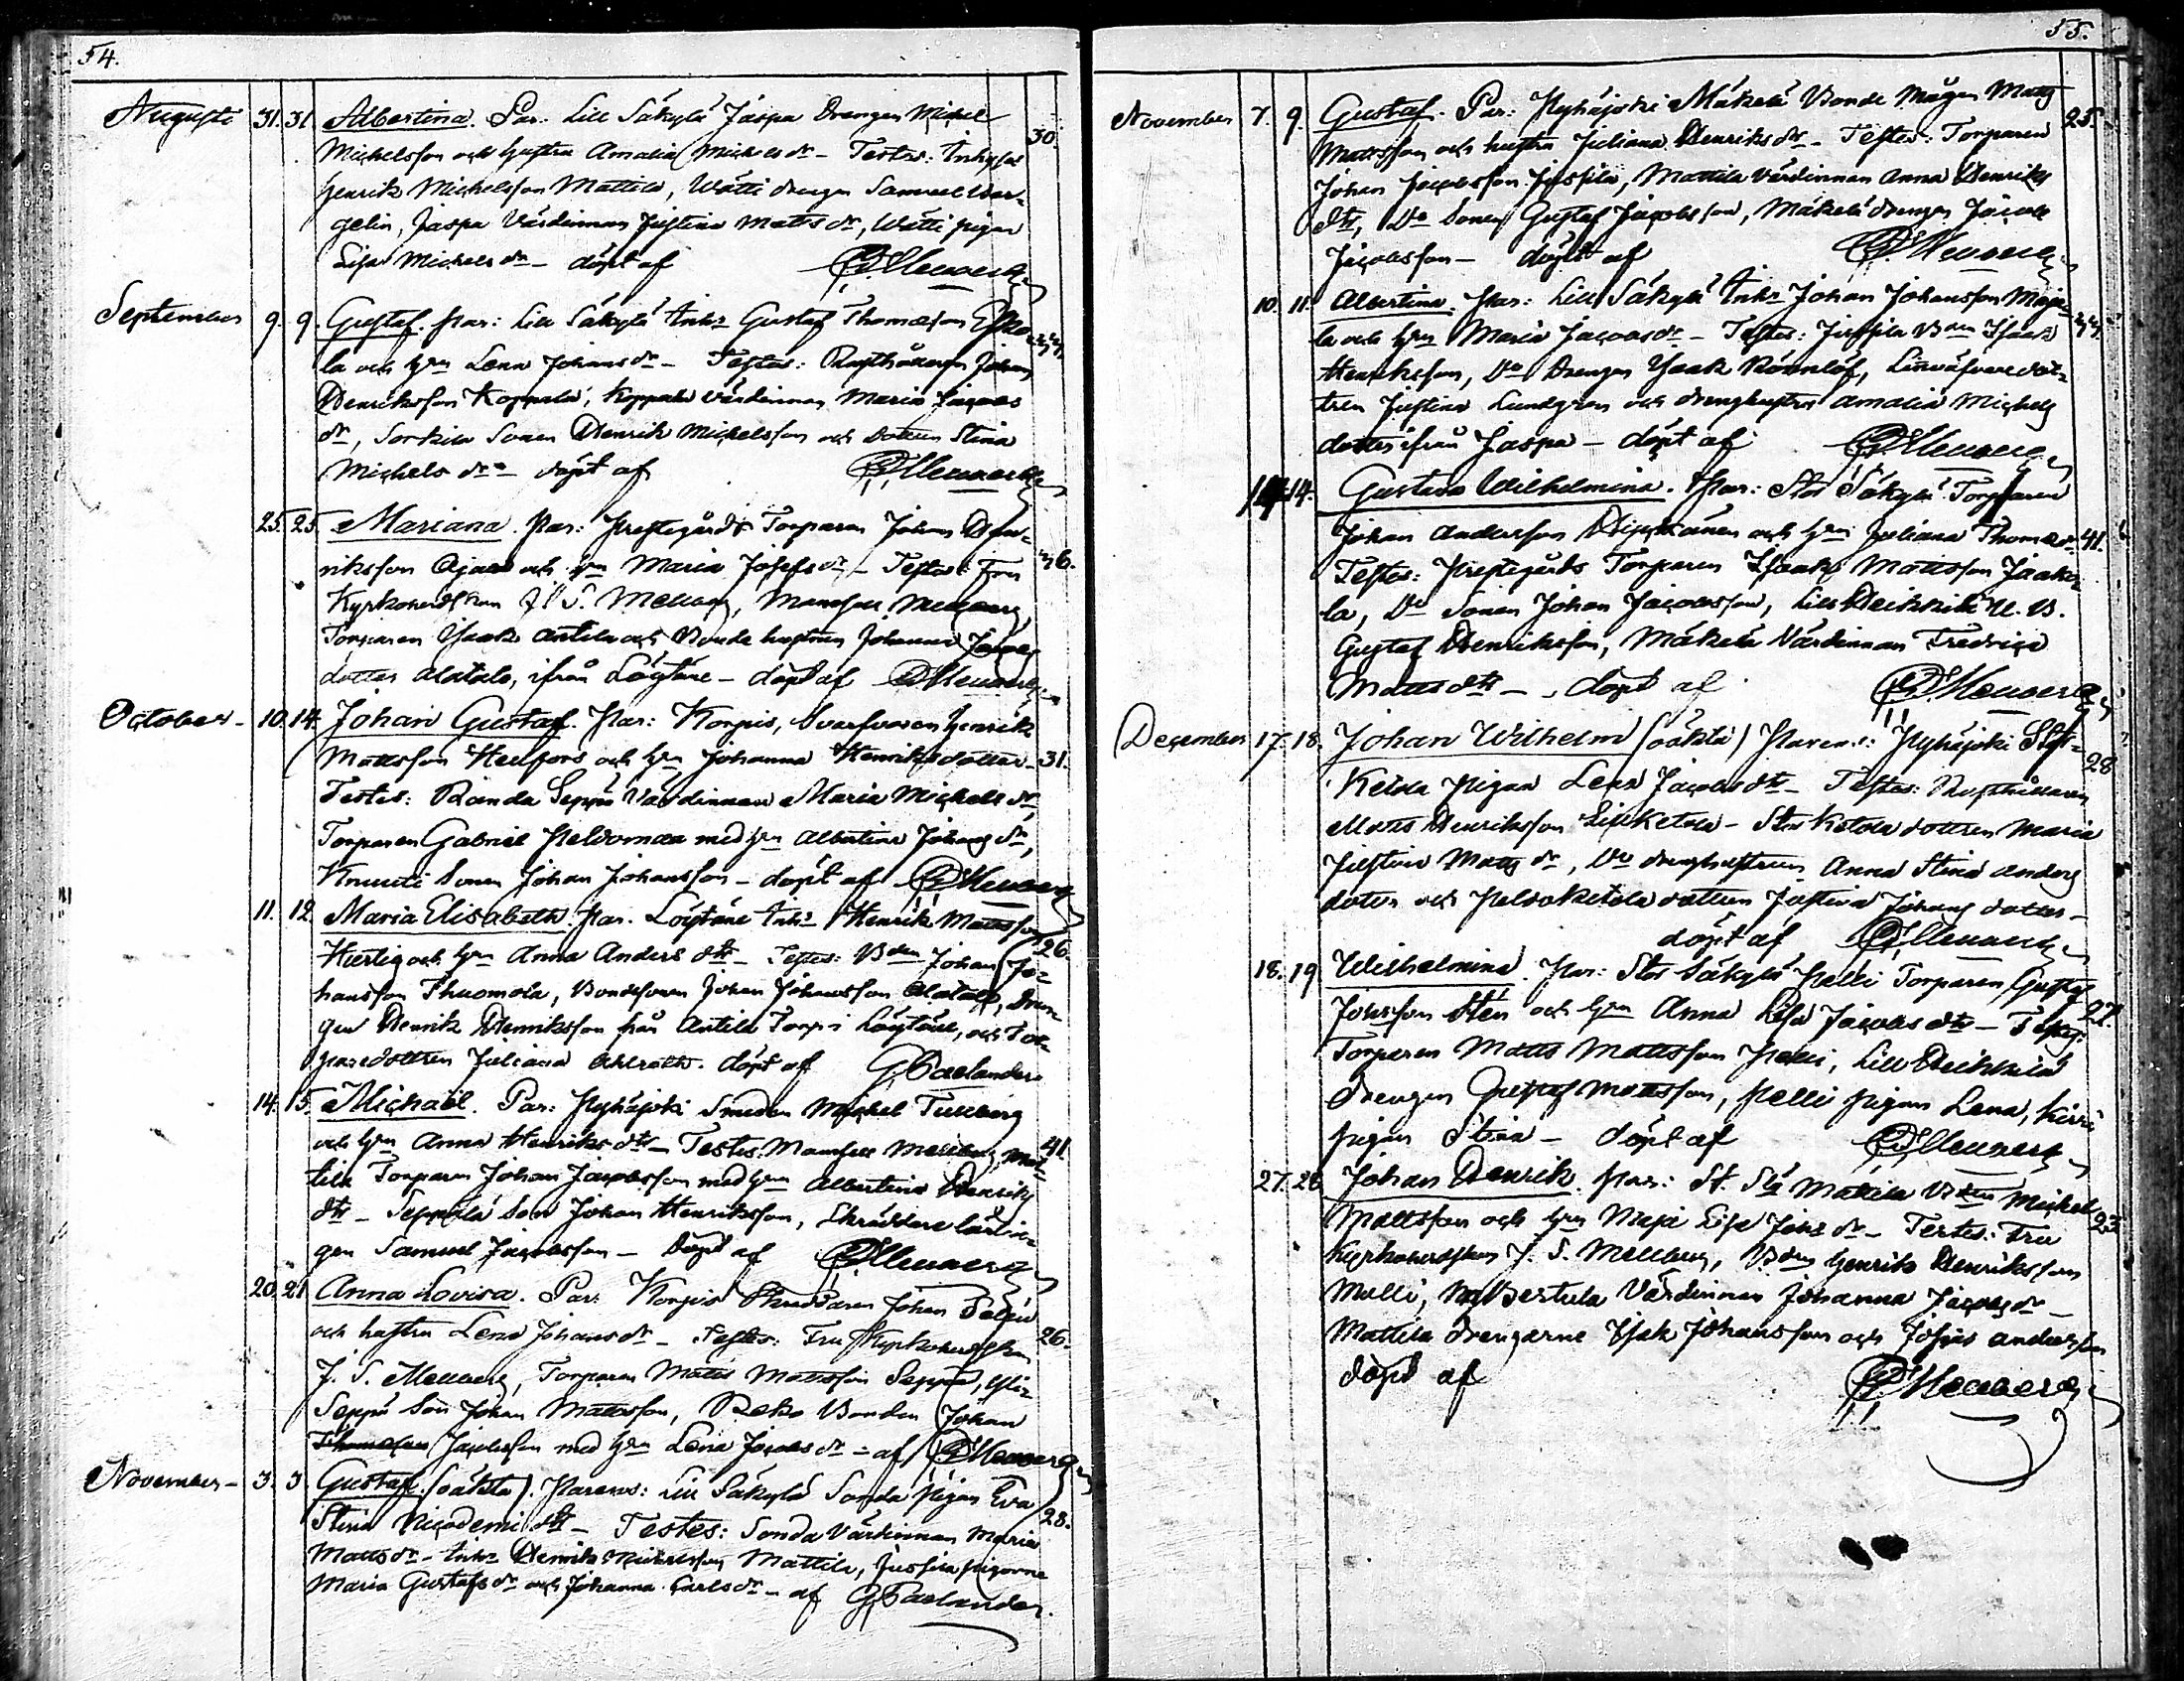 54.
Augusti 31. 31 Albertina. Par: Lill Säkylä Jaspa Drengen Michel
Michelsson och hustru Amalia Michelsdr – Testes: Inhyses 30.
Henrik Michelsson Mattila, Wätti drengen Samuel Wer-
gelin, Jaspa Värdinnan Justina Mattsdr, Wätti pigan
Lisa Michelsdr – döpt af
September 9. 9. Gustaf. Par: Lill Säkylä Inhs Gustaf Thomasson Esko-
la och hru Lena Johansdr – Testes: Rusthållaren Johan
Henriksson Koppala, Koppala värdinnan Maria Jacobs
dr, Sorkila Sonen Henrik Michelsson och dottren Stina
Michelsdr – döpt af
25. 25. Mariana. Par: Prestegårds Torparen Johan Hen-
riksson Ajala och hru Maria Josefsdr – Testes: Fru
Kyrkoherdskan J. S. Mellberg, Mamsell Mellberg,
Torparen Isaak Antila och Bonde hustrun Johanna Jacobs
dotter Alatalo, ifrån Löytäne – döpt af
October – 10. 14. Johan Gustaf. Par: Korpis, Svarfvaren Henrik
Mattsson Helfors och hru Johanna Henriksdotter – 31.
Testes: Randa Seppä Värdinnan Maria Michelsdr,
Torparen Gabriel Peldomaa med hru Albertina Johansdr,
Knuuti Sonen Johan Johansson – döpt af
11. 12. Maria Elisabeth. Par. Löytäne Inhs Henrik Mattsson
Hertig och hru Anna Andersdtr – Testes: Bden Johan Jo- 26.
hansson Thuomola, Bondesonen Johan Johansson Alatalo, Dren-
gen Henrik Henriksson från Antila Torp i Löytäne, och Tor-
paredottren Juliana Ahlroth. döpt af G. Paelander
14. 15. Michaël. Par: Pyhäjoki Smeden Michel Tullberg
och hru Anna Henriksdtr – Testes: Mamsell Mellberg, Mat- 41.
tila Torparen Johan Jacobsson med hru Albertina Henriks
dtr – Seppälä Son Johan Henriksson, Skräddare lärlin-
gen Samuel Jacobsson – Döpt af
20. 21 Anna Lovisa. Par: Korpis Johan
och hustru Lena Johansdr – Testes: Fru Kyrkoherdskan 26.
J. S. Mellberg, Torparen Matts Mattsson Seppä,
Seppä Son Johan Mattsson, Reko Bonden Johan
Thomasson Jacobsson med hru Lena Jacobsdr – af
November – 3. 3 Gustaf (oäkta). Parens: Lill Säkylä Sonda pigan Eva
Stina Nicodemidtr – Testes: Sonda Värdinnan Maria 28.
Mattsdr – Inhs Henrik Michelsson Mattila, Jussila pigorna
Maria Gustafsdr och Johanna Carlsdr – af G. Paelander.
55.
November 7. 9. Gustaf. Par: Pyhäjoki Mäkelä Bonde Mågen Matts 25.
Mattsson och hustru Juliana Henriksdr – Testes: Torparen
Johan Jacobsson Jussila, Mattila värdinnan Anna Henriks
dtr, Do Sonen Gustaf Jacobsson, Mäkelä drengen Jacob
Jacobsson – döpt af
10. 11. Albertina. Par: Lill Säkylä Inhs Johan Johansson Maja-
la och hru Maria Jacobsdr – Testes: Jussila Bden Isaak
Henriksson, Do Drengen Isaak Rönnlöf, Linväfvare dot-
tren Justina Lundgren och drenghustru Amalia Michels
dotter ifrån Jaspa – döpt af
14. Gustava Wilhelmina. Par: Stor Säkylä Torparen
Johan Andersson och hru Juliana Thomasdr 41.
Testes: Prestegårds Torparen Isaak Mattsson Jaako-
la, Do Sonen Johan Jacobsson, Lill Heikkilä U. B.
Gustaf Henriksson, Mäkelä Värdinnan Fredrica
Mattsdtr – döpt af
December 17. 18. Johan Wilhelm (oäkta) Parens: Pyhäjoki Stor-
Ketola Pigan Lena Jacobsdtr – Testes: Rusthållaren 28
Matts Henriksson Lillketola – Stor Ketola dottren Maria
Justina Mattsdr, Do drenghustrun Anna Stina Anders
dotter och Peldoketola dottren Justina Johans dotter –
döpt af
18. 19 Wilhelmina. Par: Stor Säkylä Pelli Torparen Gustaf
Johsson Stén och hru Anna Lisa Jacobsdtr – Testes: 27.
Torparen Matts Mattsson Pelli, Lill Heikkilä
drengen Gustaf Mattsson, Pelli pigan Lena,
pigan Stina – döpt af
27. 28. Johan Henrik. Par: St. Slä Mattila Bden Michel
Mattsson och hru Maja Lisa Johsdr – Testes: Fru 23
Kyrkoherdskan J. S. Mellberg, Bden Henrik Henriksson
Molli, Bertula Värdinnan Johanna Jacobsdr –
Mattila drengarne Isak Johansson och Josua Andersson
döpt af